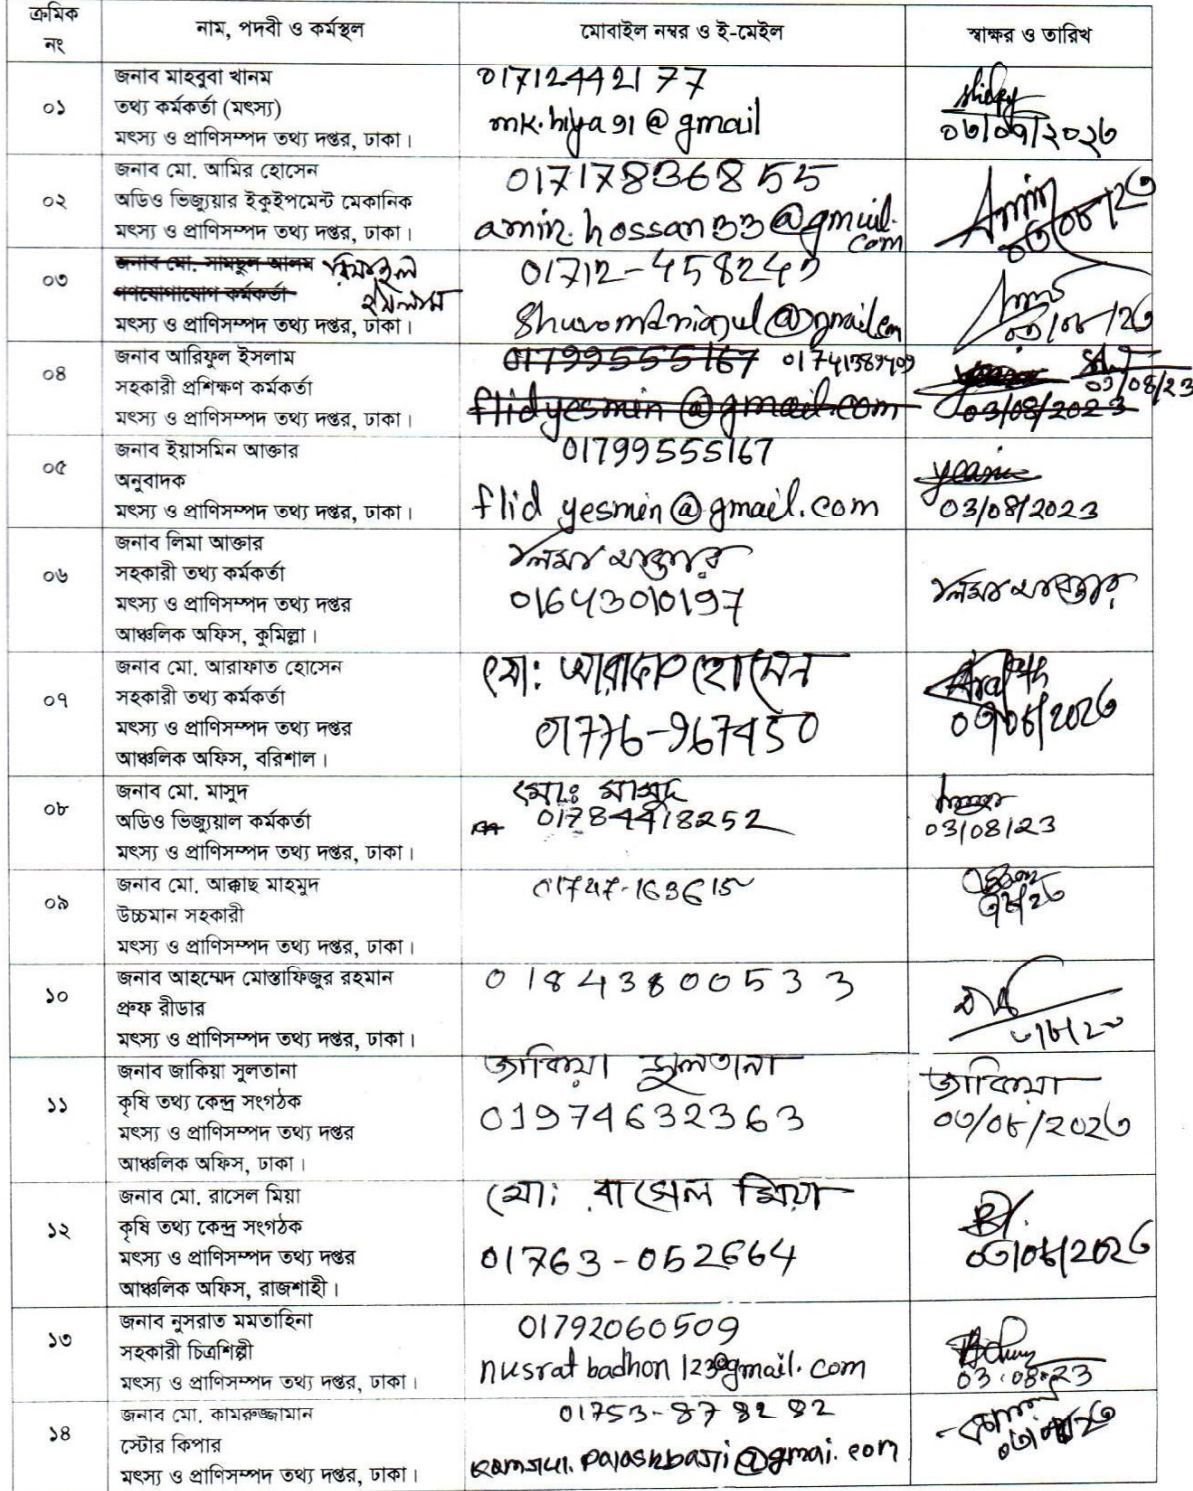 ক্রমিক নং
নাম, পদবী ও কর্মস্থল
মোবাইল নম্বর ও ই-মেইল
স্বাক্ষর ও তারিখ
০১
জনাব মাহবুবা খানম
তথ্য কর্মকর্তা (মৎস্য)
মৎস্য ও প্রাণিসম্পদ তথ্য দপ্তর, ঢাকা।
01712442177
mk.hiya91@gmail
০২
জনাব মো. আমির হোসেন
অডিও ভিজ্যুয়ার ইকুইপমেন্ট মেকানিক
মৎস্য ও প্রাণিসম্পদ তথ্য দপ্তর, ঢাকা।
01717836855
amir.hossan33@gmail.com
০৩
জনাব মো. সামছুল আলম
গণযোগাযোগ কর্মকর্তা
মৎস্য ও প্রাণিসম্পদ তথ্য দপ্তর, ঢাকা।
01712-458245
০৪
জনাব আরিফুল ইসলাম
সহকারী প্রশিক্ষণ কর্মকর্তা
মৎস্য ও প্রাণিসম্পদ তথ্য দপ্তর, ঢাকা।
01799555167
flidyesmin@gmail.com
03/08/23
03/08/2023
০৫
জনাব ইয়াসমিন আক্তার
অনুবাদক
মৎস্য ও প্রাণিসম্পদ তথ্য দপ্তর, ঢাকা।
01799555167
flid yesmin@gmail.com
03/08/2023
০৬
জনাব লিমা আক্তার
সহকারী তথ্য কর্মকর্তা
মৎস্য ও প্রাণিসম্পদ তথ্য দপ্তর
আঞ্চলিক অফিস, কুমিল্লা।
লিমা আক্তার
01643010197
লিমা আক্তার
০৭
জনাব মো. আরাফাত হোসেন
সহকারী তথ্য কর্মকর্তা
মৎস্য ও প্রাণিসম্পদ তথ্য দপ্তর
আঞ্চলিক অফিস, বরিশাল।
মো: আরাফাত হোসেন
01776-967450
০৮
জনাব মো. মাসুদ
অডিও ভিজ্যুয়াল কর্মকর্তা
মৎস্য ও প্রাণিসম্পদ তথ্য দপ্তর, ঢাকা।
মোঃ মাসুদ
01784418252
03/08/23
০৯
জনাব মো. আক্কাছ মাহমুদ
উচ্চমান সহকারী
মৎস্য ও প্রাণিসম্পদ তথ্য দপ্তর, ঢাকা।
১০
জনাব আহম্মেদ মোস্তাফিজুর রহমান
প্রুফ রীডার
মৎস্য ও প্রাণিসম্পদ তথ্য দপ্তর, ঢাকা।
01843800533
১১
জনাব জাকিয়া সুলতানা
কৃষি তথ্য কেন্দ্র সংগঠক
মৎস্য ও প্রাণিসম্পদ তথ্য দপ্তর
আঞ্চলিক অফিস, ঢাকা।
জাকিয়া সুলতানা
01974632363
জাকিয়া
০৩/০৮/২০২৩
১২
জনাব মো. রাসেল মিয়া
কৃষি তথ্য কেন্দ্র সংগঠক
মৎস্য ও প্রাণিসম্পদ তথ্য দপ্তর
আঞ্চলিক অফিস, রাজশাহী।
মো: রাসেল মিয়া
01763-052664
০৩/০৮/২০২৩
১৩
জনাব নুসরাত মমতাহিনা
সহকারী চিত্রশিল্পী
মৎস্য ও প্রাণিসম্পদ তথ্য দপ্তর, ঢাকা।
01792060509
nusrat badhon 123@gmail.com
03.08.23
১৪
জনাব মো. কামরুজ্জামান
স্টোর কিপার
মৎস্য ও প্রাণিসম্পদ তথ্য দপ্তর, ঢাকা।